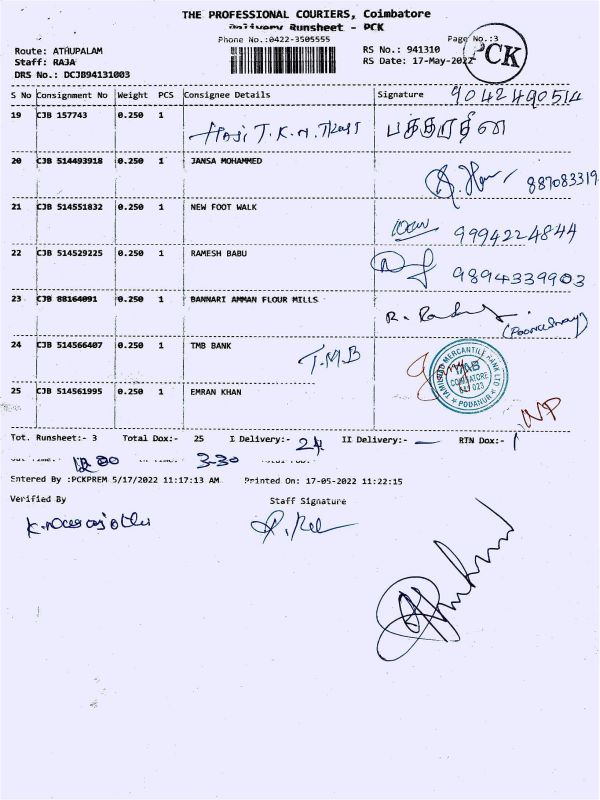 THE PROFESSIONAL COURIERS, Coimbatore
Delivery Runsheet - PCK
Phone No.:0422-3505555 Page No.:3
PCK
Route: ATHUPALAM RS No.: 941310
Staff: RAJA RS Date: 17-May-2022
DRS No.: DCJB94131003
S No Consignment No Weight PCS Consignee Details Signature 9042490514
19 CJB 157743 0.250 1 Haji T.K.M. Trust
20 CJB 514493918 0.250 1 JANSA MOHAMMED 887083319
21 CJB 514551832 0.250 1 NEW FOOT WALK 9994224844
22 CJB 514529225 0.250 1 RAMESH BABU 9894339903
23 CJB 88164091 0.250 1 BANNARI AMMAN FLOUR MILLS R.
24 CJB 514566407 0.250 1 TMB BANK T.M.B
TAMILNAD MERCANTILE BANK LTD
TMB
COIMBATORE
641 023
★ PODANUR ★
25 CJB 514561995 0.250 1 EMRAN KHAN
Tot. Runsheet:- 3 Total Dox:- 25 I Delivery:- 24 II Delivery:- — RTN Dox:- 1
3-30
Entered By :PCKPREM 5/17/2022 11:17:13 AM Printed On: 17-05-2022 11:22:15
Verified By Staff Signature